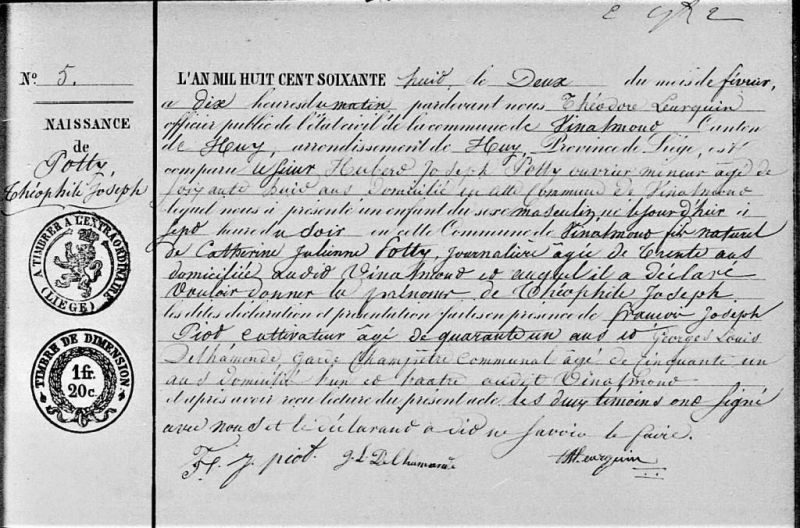 N° 5.
NAISSANCE
de
Potty,
Théophile Joseph
A TIMBRER A L'EXTRAORDINAIRE
(LIÈGE)
TIMBRE DE DIMENSION
1 fr.
20 c.
L'AN MIL HUIT CENT SOIXANTE huit le Deux du mois de février,
a dix heures du matin pardevant nous Théodore Leurquin
officier public de l'état civil de la commune de Vinalmond Canton
de Huy, arrondissement de Huy, Province de Liége, est
comparu le sieur Hubert Joseph Potty ouvrier mineur âgé de
soixante huit ans domicilié en cette Commune de Vinalmond
lequel nous à présenté un enfant du sexe masculin, né le jour d'hier à
sept heures du soir en cette Commune de Vinalmond fils naturel
de Catherine Julienne Potty, journalière âgée de trente ans
domiciliée audit Vinalmond et auquel il a déclaré
vouloir donner les prénoms de Théophile Joseph.
les dites déclaration et présentation faites en présence de françois Joseph
Piot cultivateur âgé de quarante un ans et Georges Louis
Delhamende Garde Champêtre Communal âgé de cinquante un
ans domicilié l'un et l'autre audit Vinalmond
et après avoir reçu lecture du présent acte les deux témoins ont signé
avec nous et le déclarant a dit ne savoir le faire.
F. J. piot G. L. Delhamende Th Leurquin